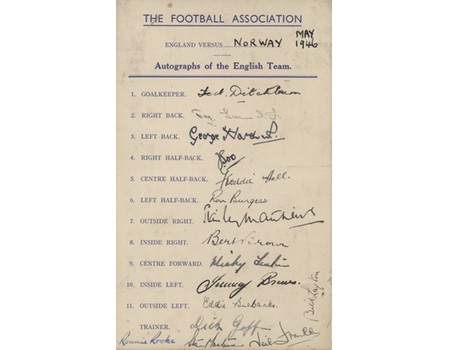 THE FOOTBALL ASSOCIATION
ENGLAND VERSUS NORWAY MAY 1946
Autographs of the English Team.
1. GOALKEEPER. Ted. Ditchburn
2. RIGHT BACK.
3. LEFT BACK. George Hardwick
4. RIGHT HALF-BACK.
5. CENTRE HALF-BACK. Freddie Hall
6. LEFT HALF-BACK. Ron Burgess
7. OUTSIDE RIGHT. Stanley Matthews
8. INSIDE RIGHT. Bert Brown
9. CENTRE FORWARD. Micky Fenton
10. INSIDE LEFT. Jimmy
11. OUTSIDE LEFT. Eddie Burbanks
TRAINER. Dick Goff
Ronnie Rooke